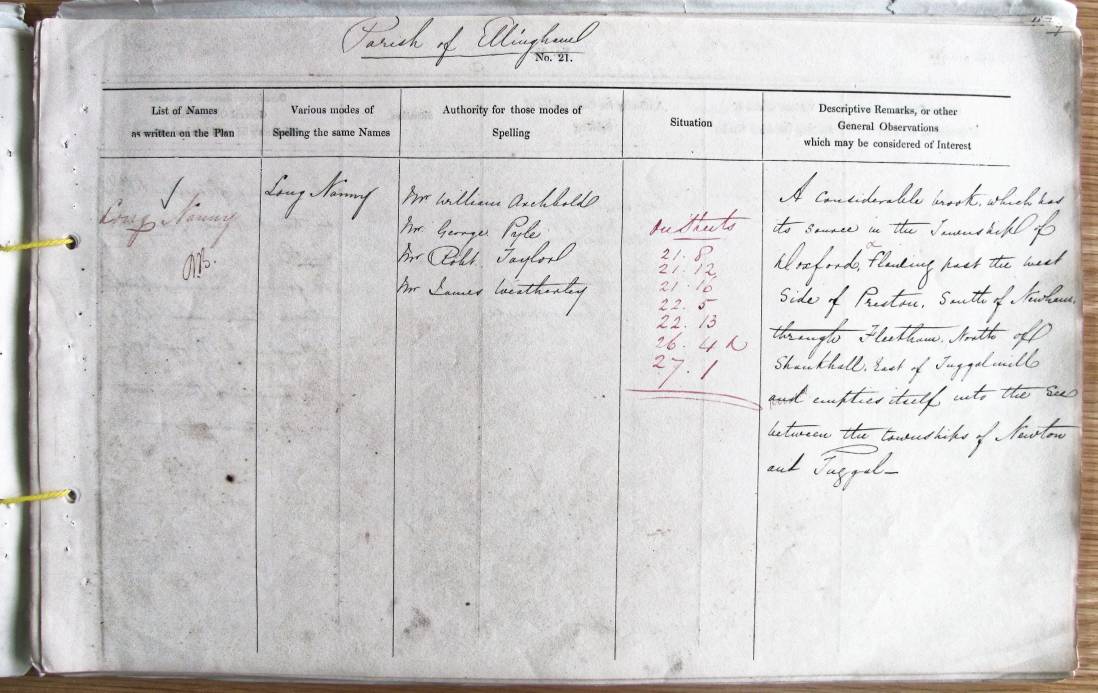 Parish of Ellingham
No. 21.
List of Names
as written on the Plan
Various modes of
Spelling the same Names
Authority for those modes of
Spelling
Situation
Descriptive Remarks, or other
General Observations
which may be considered of Interest
Long Nanny
Long Nanny
Mr William Archbold
Mr. George Pyle
Mr Robt. Taylor
Mr James Weatherley
On Sheets
21. 8
21. 12
21. 16
22. 5
22. 13
26. 4
27. 1
A considerable brook, which has
its source in the Township of
Doxford, Flowing past the west
Side of Preston, South of Newham,
through Fleetham, North of
Shankhall, East of Tuggalmill
and empties itself into the Sea
between the townships of Newton
and Tuggal—